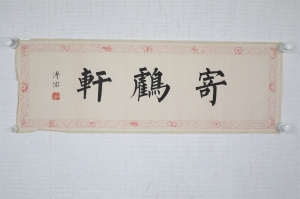 寄鶴軒
溥佐